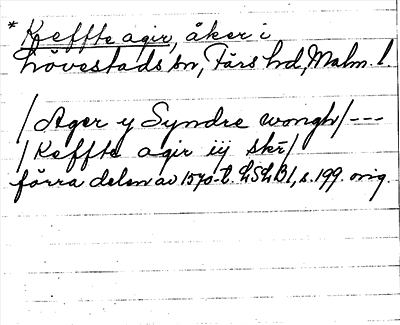 * Keffte agir, åker i
Hövestads sn, Färs hd, Malm. l.
/Ager y Syndre wongh/ ---
/Keffte agir iij skr/
förra delen av 1570-t. LSLB1, s. 199. orig.